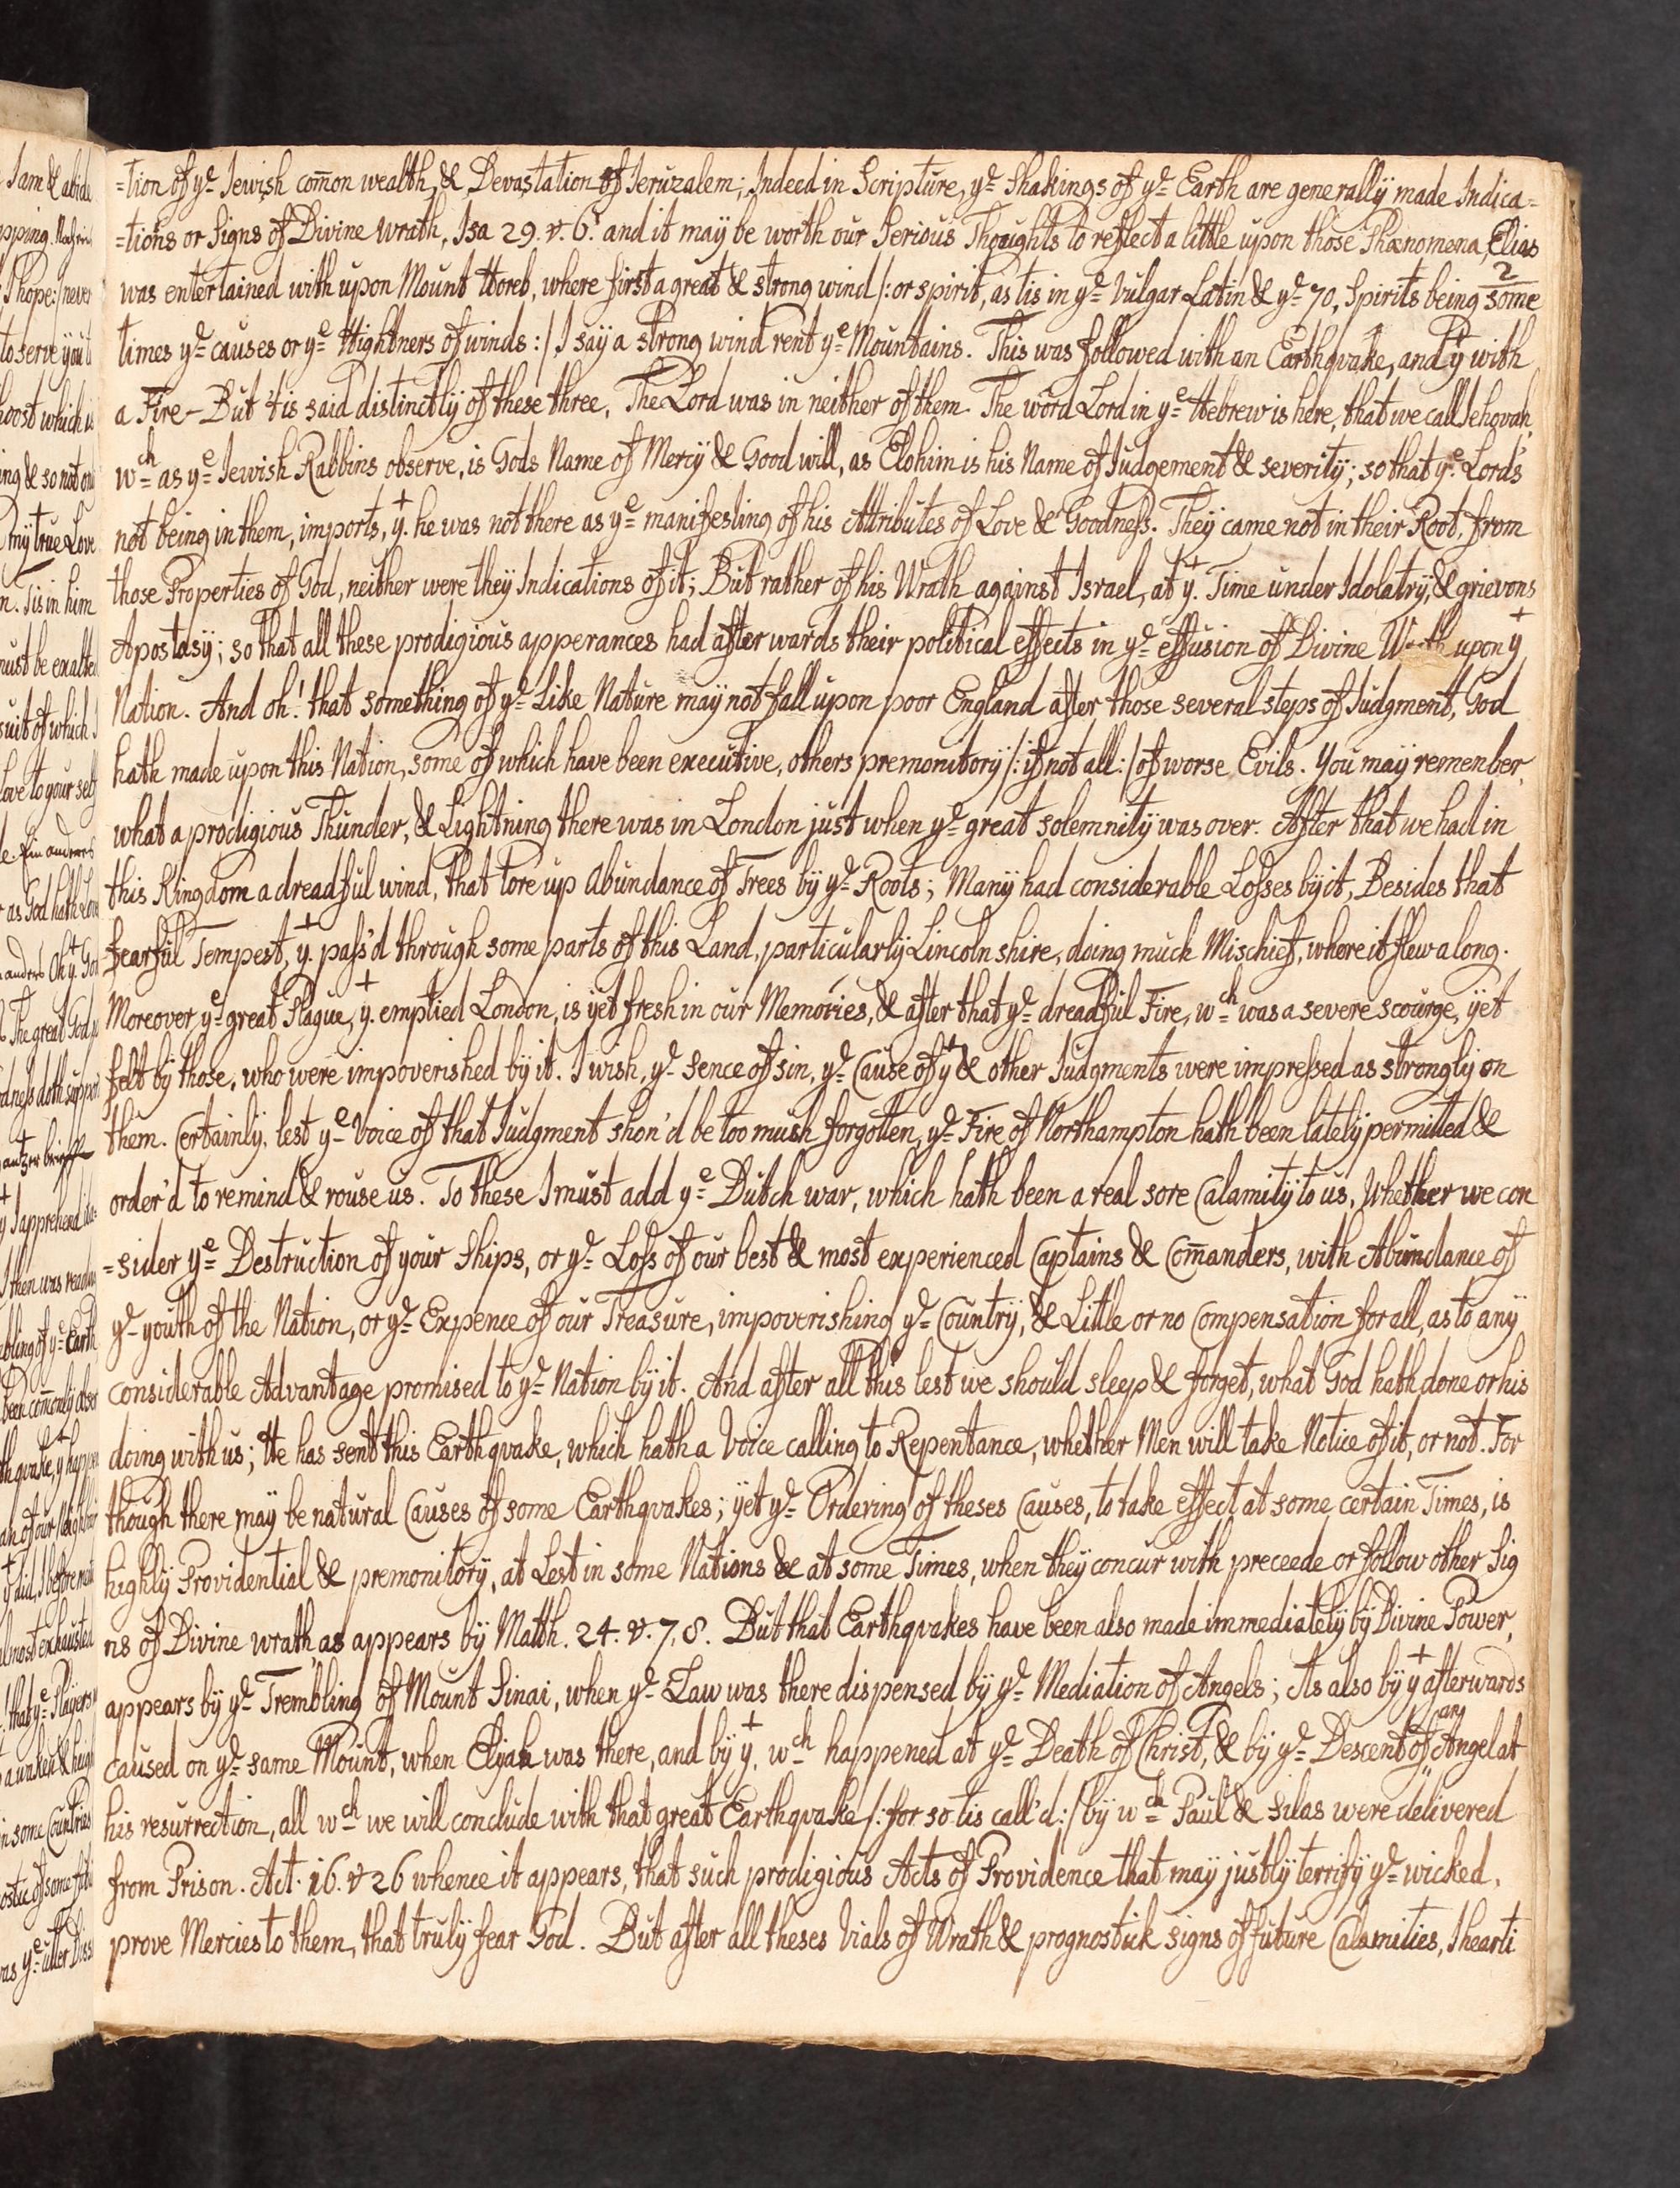 =tion of ye Jewish com̄on wealth, & Devastation of Jeruzalem; Indeed in Scripture, ye Shakings of ye Earth are generally made Indica=
=tions or Signs of Divine Wrath, Isa 29. v. 6. and it may be worth our Serious Thoughts to reflect a little upon those Phænomena, Elias
2
was entertained with upon Mount Horeb, where first a great & strong wind /: or spirit, as tis in ye Vulgar Latin & ye 70, Spirits being some
times ye causes or ye Hightners of winds :/ I say a strong wind rent ye Mountains. This was followed with an Earthqvake, and yt with
a Fire – But 'tis said distinctly of these three, The Lord was in neither of them. The word Lord in ye Hebrew is here, that we call Jehovah,
wch as ye Jewish Rabbins observe, is Gods Name of Mercy & Good will, as Elohim is his Name of Judgement & severity; so that ye Lord's
not being in them, imports, yt he was not there as ye manifesting of his Attributes of Love & Goodness. They came not in their Root, from
those Properties of God, neither were they Indications of it; But rather of his Wrath against Israel, at yt Time under Idolatry, & grievons
Apostasy; so that all these prodigious apperances had afterwards their political effects in ye effusion of Divine upon yt
Nation. And oh! that something of ye Like Nature may not fall upon poor England after those several steps of Judgment, God
hath made upon this Nation, some of which have been executive, others premonitory /: if not all :/ of worse Evils. You may remenber,
what a prodigious Thunder, & Lightning there was in London just when ye great solemnity was over. After that we had in
this Kingdom a dreadful wind, that tore up Abundance of Trees by ye Roots; Many had considerable Losses by it, Besides that
fearful Tempest, yt pass'd through some parts of this Land, particularly Lincoln shire, doing muck Mischief, where it flew along.
Moreover ye great Plague, yt emptied London, is yet fresh in our Memories, & after that ye dreadful Fire, wch was a severe scourge, yet
felt by those, who were impoverished by it. I wish, ye sence of sin, ye Cause of yt & other Judgments were impressed as strongly on
them. Certainly, lest ye Voice of that Judgment shon'd be too mush forgotten, ye Fire of Northampton hath been lately permitted &
order'd to remind & rouse us. To these I must add ye Dutch war, which hath been a real sore Calamity to us, Whether we con
=sider ye Destruction of your Ships, or ye Loss of our best & most experienced Captains & Com̄anders, with Abundance of
ye youth of the Nation, or ye Expence of our Treasure, impoverishing ye Country, & Little or no Compensation for all, as to any
considerable Advantage promised to ye Nation by it. And after all this lest we should sleep & forget, what God hath done or his
doing with us; He has sent this Earthqvake, which hath a Voice calling to Repentance, whether Men will take Notice of it, or not. For
though there may be natural Causes of some Earthqvakes; yet ye Ordering of theses Causes, to take effect at some certain Times, is
highly Providential & premonitory, at Lest in some Nations & at some Times, when they concur with preceede or follow other Sig
ns of Divine wrath, as appears by Matth. 24. v. 7, 8. But that Earthqvakes have been also made immediately by Divine Power,
appears by ye Trembling of Mount Sinai, when ye Law was there dispensed by ye Mediation of Angels; As also by yt afterwards
caused on ye same Mount, when Elijah was there, and by yt wch happened at ye Death of Christ, & by ye Descent of an Angel at
his resurrection, all wch we will conclude with that great Earthqvake /: for so tis call'd :/ by wch Paul & Silas were delivered
from Prison. Act. 16. v 26 whence it appears, that such prodigious Acts of Providence that may justly terrify ye wicked,
prove Mercies to them, that truly fear God. But after all theses Vials of Wrath & prognostick signs of future Calamities, I hearti